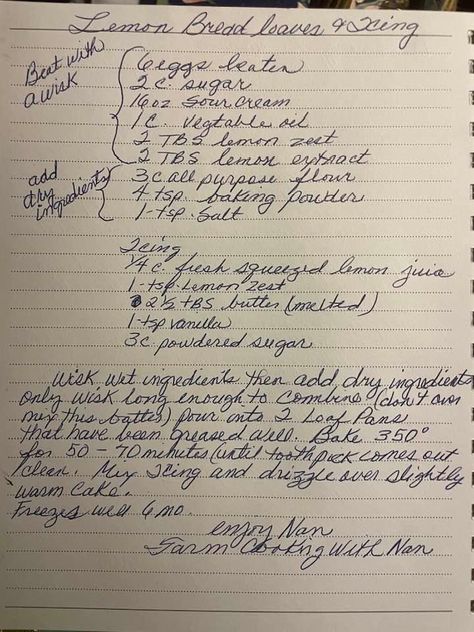 Lemon Bread loaves & Icing
Beat with
a wisk
6 eggs beaten
2 c. sugar
16 oz sour cream
1 c vegtable oil
2 TBS lemon zest
2 TBS lemon extract
add
dry
ingredients
3 c all purpose flour
4 tsp. baking powder
1 - tsp. salt
Icing
1/4 c. fresh squeezed lemon juice
1 - tsp. Lemon zest
2 1/2 TBS butter (melted)
1 - tsp vanilla
3 c. powdered sugar
Wisk wet ingredients then add dry ingredients
only wisk long enough to combine (don't over
mix this batter) pour into 2 Loaf Pans
that have been greased well. Bake 350°
for 50 - 70 minutes (until toothpick comes out
clean. Mix Icing and drizzle over slightly
warm cake.
Freezes well 6 mo.
enjoy Nan
Farm Cooking With Nan